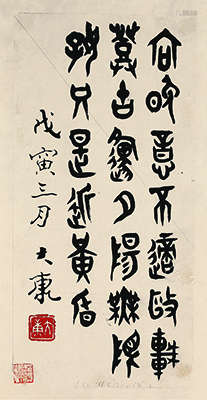 向晚意不適敺車
登古邍夕陽無限
好只是近黃昏
戊寅三月 大康
大康